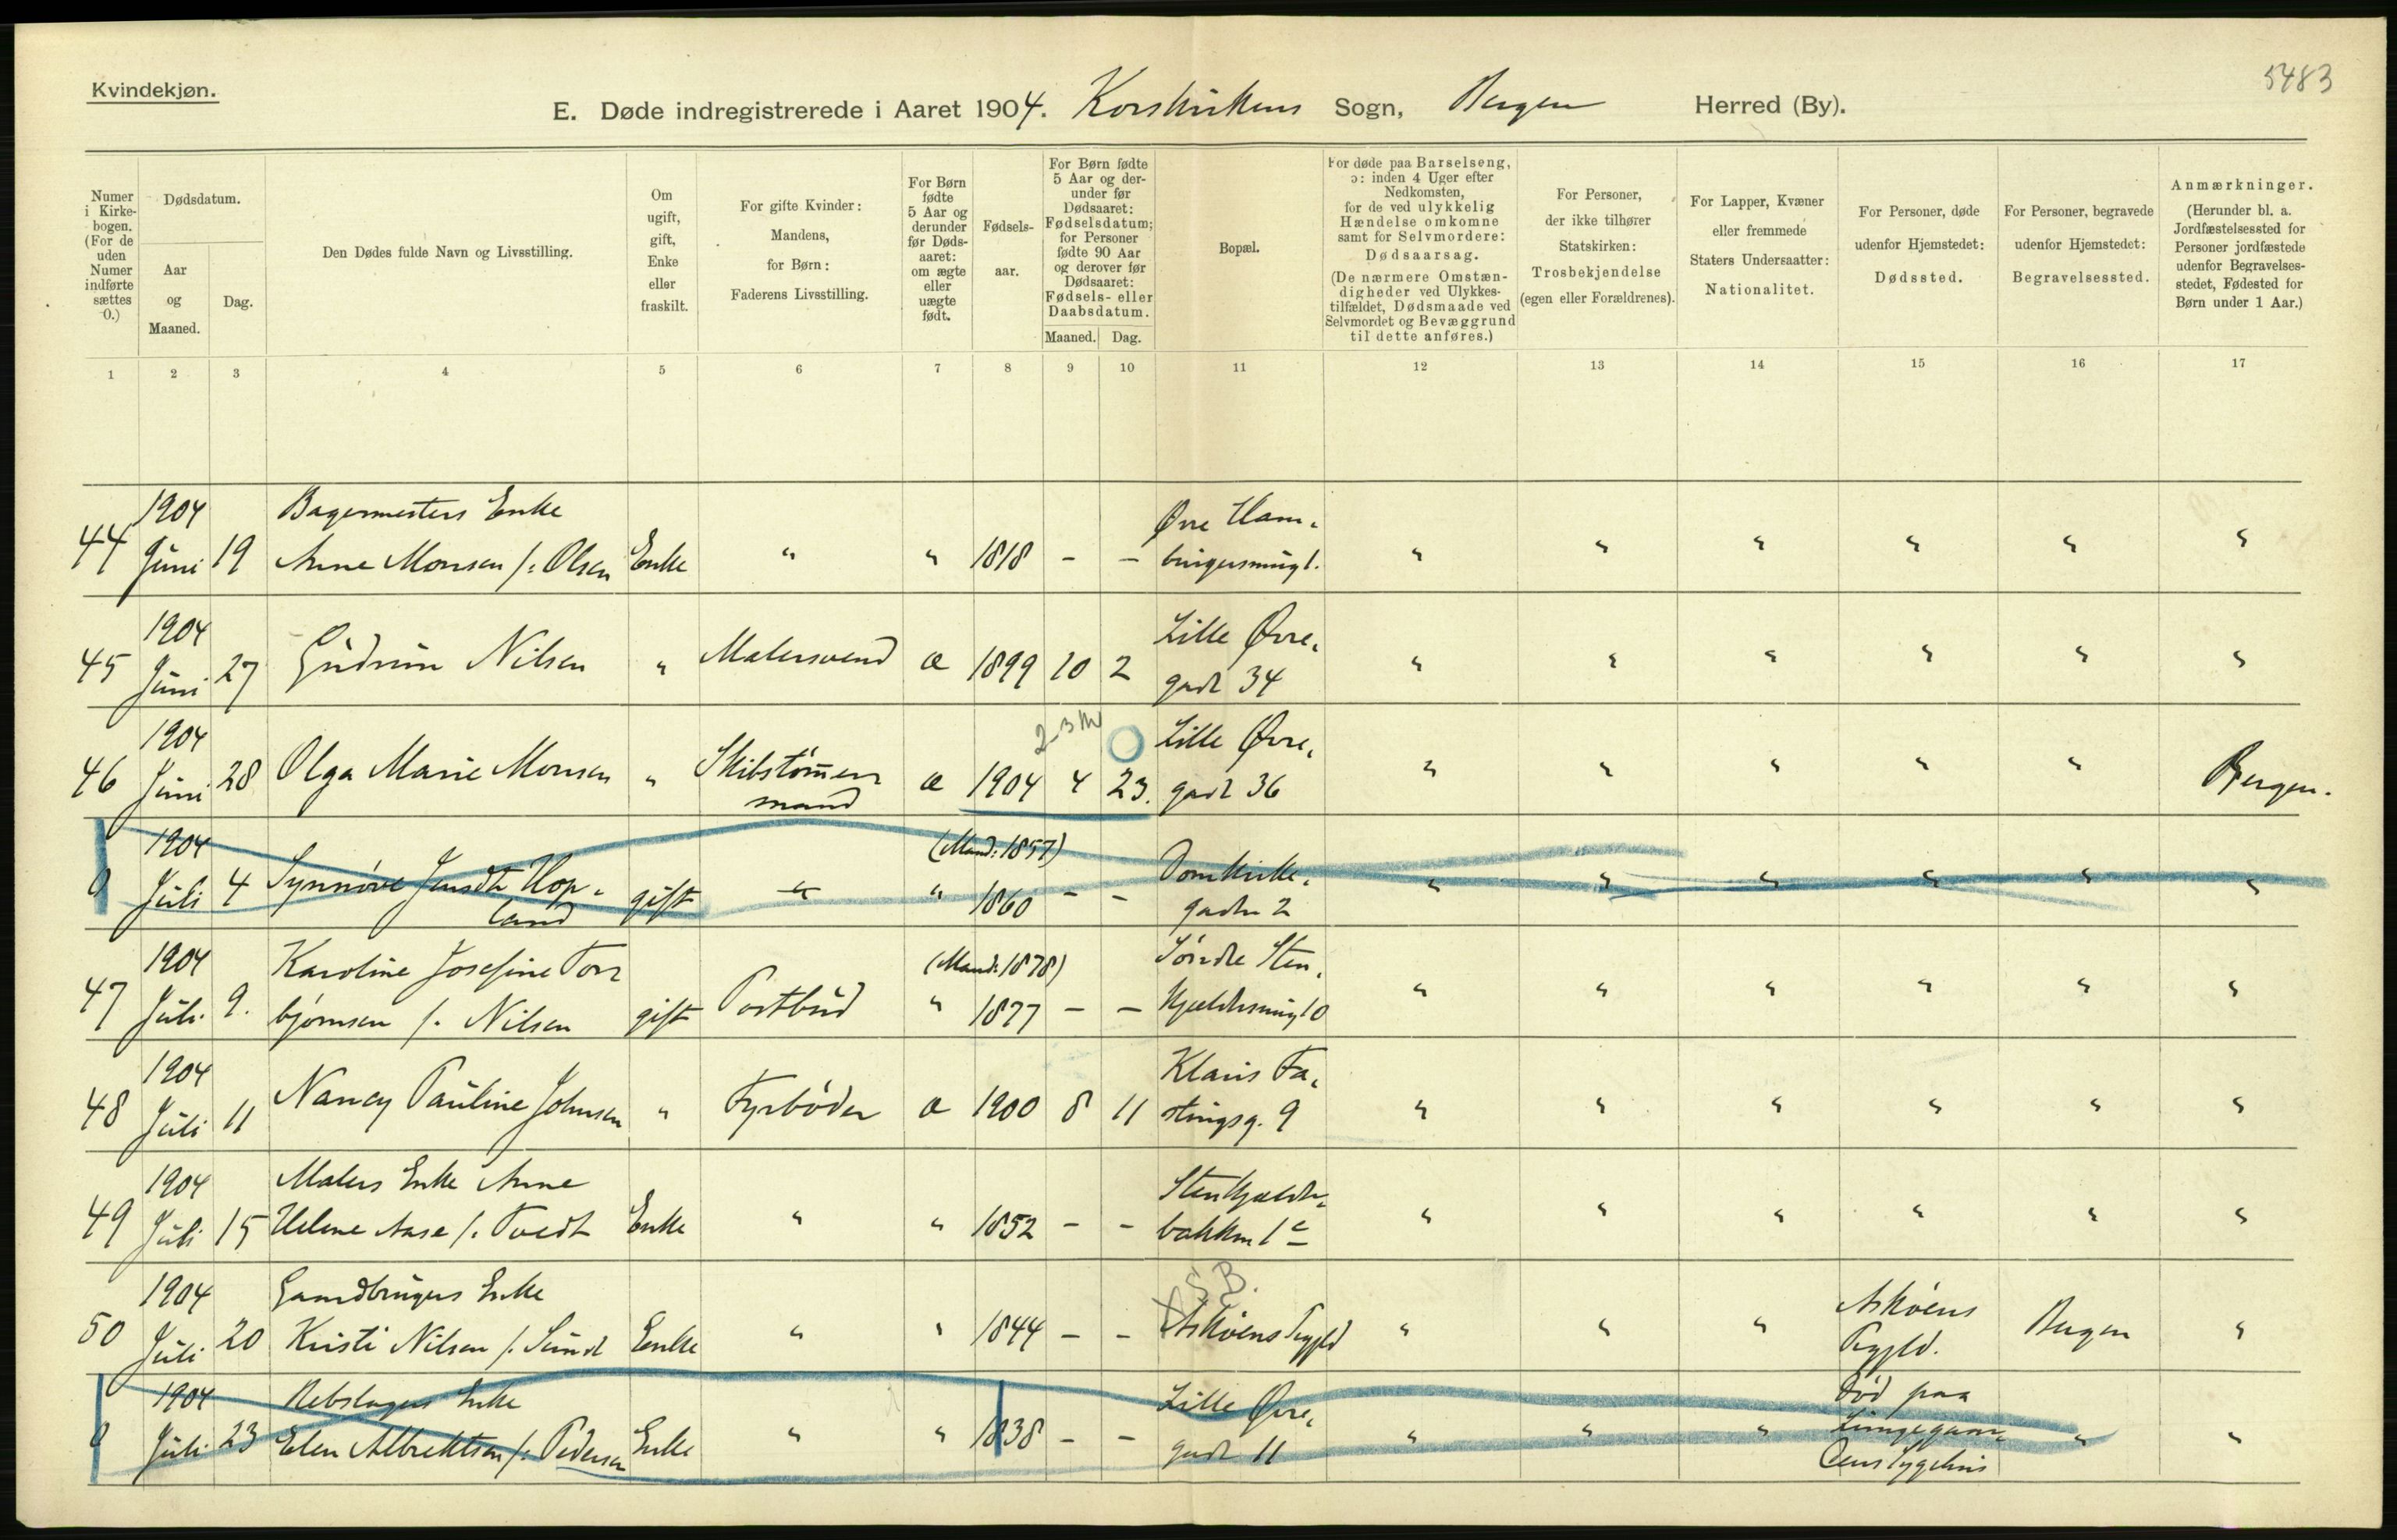 5483
Kvindekjøn.
E. Døde indregistrerede i Aaret 1904. Korskirkens Sogn, Bergen Herred (By).
Numer i Kirke-bogen. (For de uden Numer indførte sættes 0.)
Dødsdatum.
Aar og Maaned.
Dag.
Den Dødes fulde Navn og Livsstilling.
Om ugift, gift, Enke eller fraskilt.
For gifte Kvinder: Mandens, for Børn: Faderens Livsstilling.
For Børn fødte 5 Aar og derunder før Døds-aaret: om ægte eller uægte født.
Fødsels-aar.
For Børn fødte 5 Aar og der-under før Dødsaaret: Fødselsdatum; for Personer fødte 90 Aar og derover før Dødsaaret: Fødsels- eller Daabsdatum.
Maaned. Dag.
Bopæl.
For døde paa Barselseng, ɔ: inden 4 Uger efter Nedkomsten, for de ved ulykkelig Hændelse omkomne samt for Selvmordere: Dødsaarsag. (De nærmere Omstæn-digheder ved Ulykkes-tilfældet, Dødsmaade ved Selvmordet og Bevæggrund til dette anføres.)
For Personer, der ikke tilhører Statskirken: Trosbekjendelse (egen eller Forældrenes).
For Lapper, Kvæner eller fremmede Staters Undersaatter: Nationalitet.
For Personer, døde udenfor Hjemstedet: Dødssted.
For Personer, begravede udenfor Hjemstedet: Begravelsessted.
Anmærkninger. (Herunder bl. a. Jordfæstelsessted for Personer jordfæstede udenfor Begravelses-stedet, Fødested for Børn under 1 Aar.)
1 2 3 4 5 6 7 8 9 10 11 12 13 14 15 16 17
1904 Bagermesters Enke Øvre Ham-
44 Juni 19 Anne Monsen f. Olsen Enke " " 1818 - - burgersmug 1. " " " " " "
1904 Lille Øvre-
45 Juni 27 Gudrun Nilsen " Malersvend æ 1899 10 2 gade 34 " " " " " "
1904 2-3 M Lille Øvre-
46 Juni 28 Olga Marie Monsen " Skibstømmer æ 1904 4 23. gade 36 " " " " " Bergen.
mand
1904 (Mand: 1857) Domkirke-
0 Juli 4 Synnøve Jensdtr Hop- gift " " 1860 - - gaden 2 " " " " " "
land
1904 Karoline Josefine Tor (Mand: 1878) Søndre Sten-
47 Juli 9. bjørnsen f. Nilsen gift Postbud " 1877 - - kjeldersmug 10 " " " " " "
1904 Klaus Fa-
48 Juli 11 Nancy Pauline Johnsen " Fyrbøder æ 1900 8 11 stingsg. 9 " " " " " "
1904 Malers Enke Anne Stenkjelder-
49 Juli 15 Helene Aase f. Tvedt Enke " " 1852 - - bakken 1 c " " " " " "
1904 Enke S B. Askøens
50 Juli 20 Kristi Nilsen f. Sunde Enke " " 1844 - - Askøens Prgjld " " " Prgjld. Bergen "
1904 Rebslagers Enke Lille Øvre- død paa
0 Juli 23 Elen Albrektsen f. Pedersen Enke " " 1838 - - gade 11 " " " Lungegaar- " "
dens Sygehus